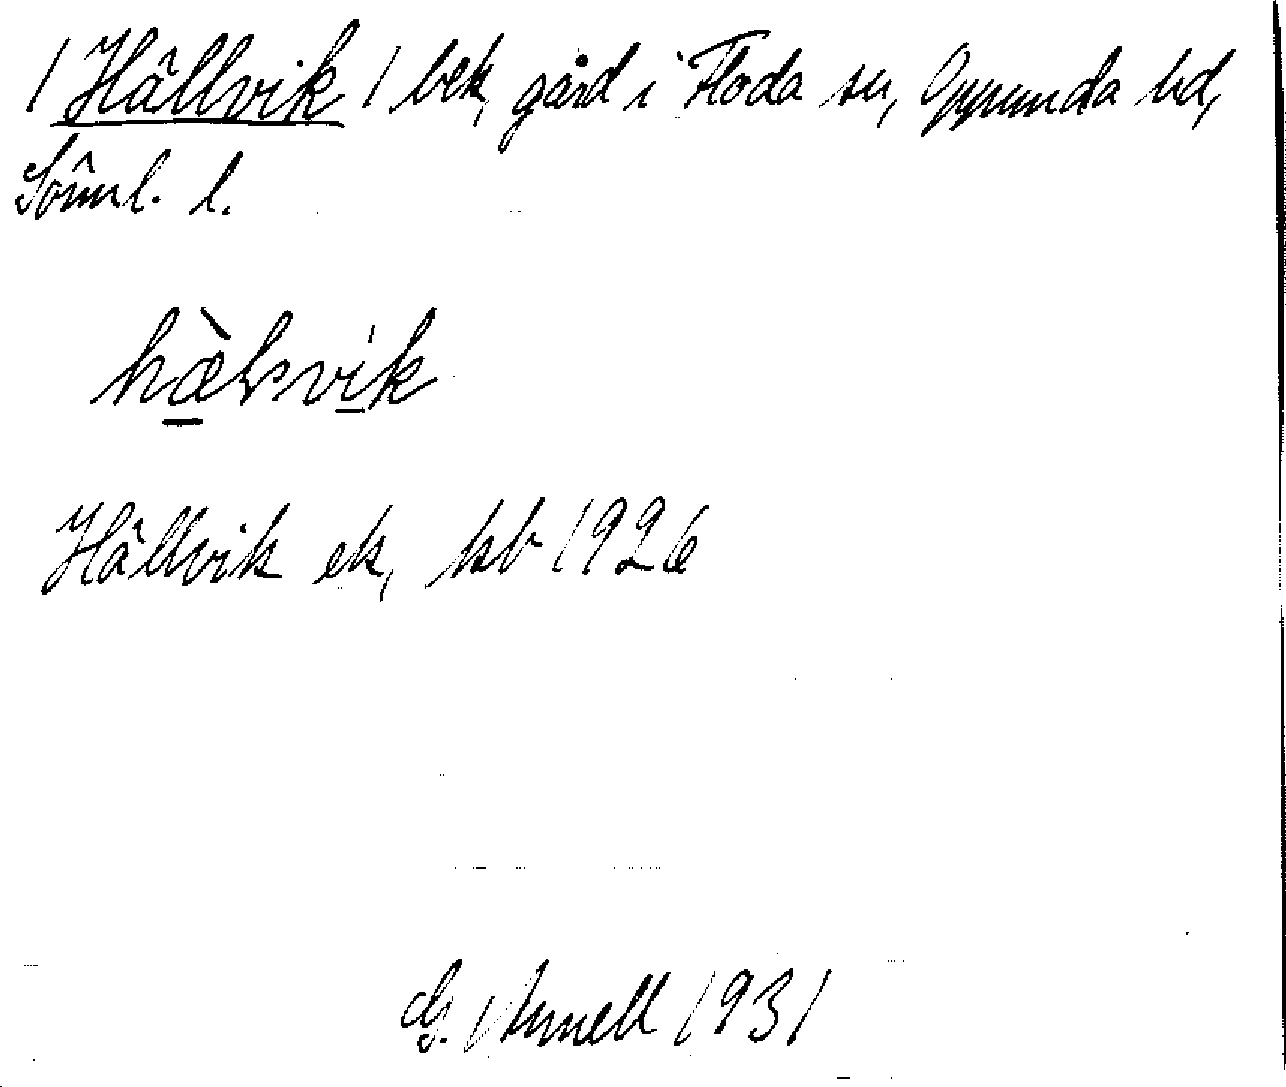 / Hällvik / bek, gård i Floda sn, Oppunda hd,
Söml. l.
hælsvik
Hällvik ek, kb 1926
G. Arnell 1931